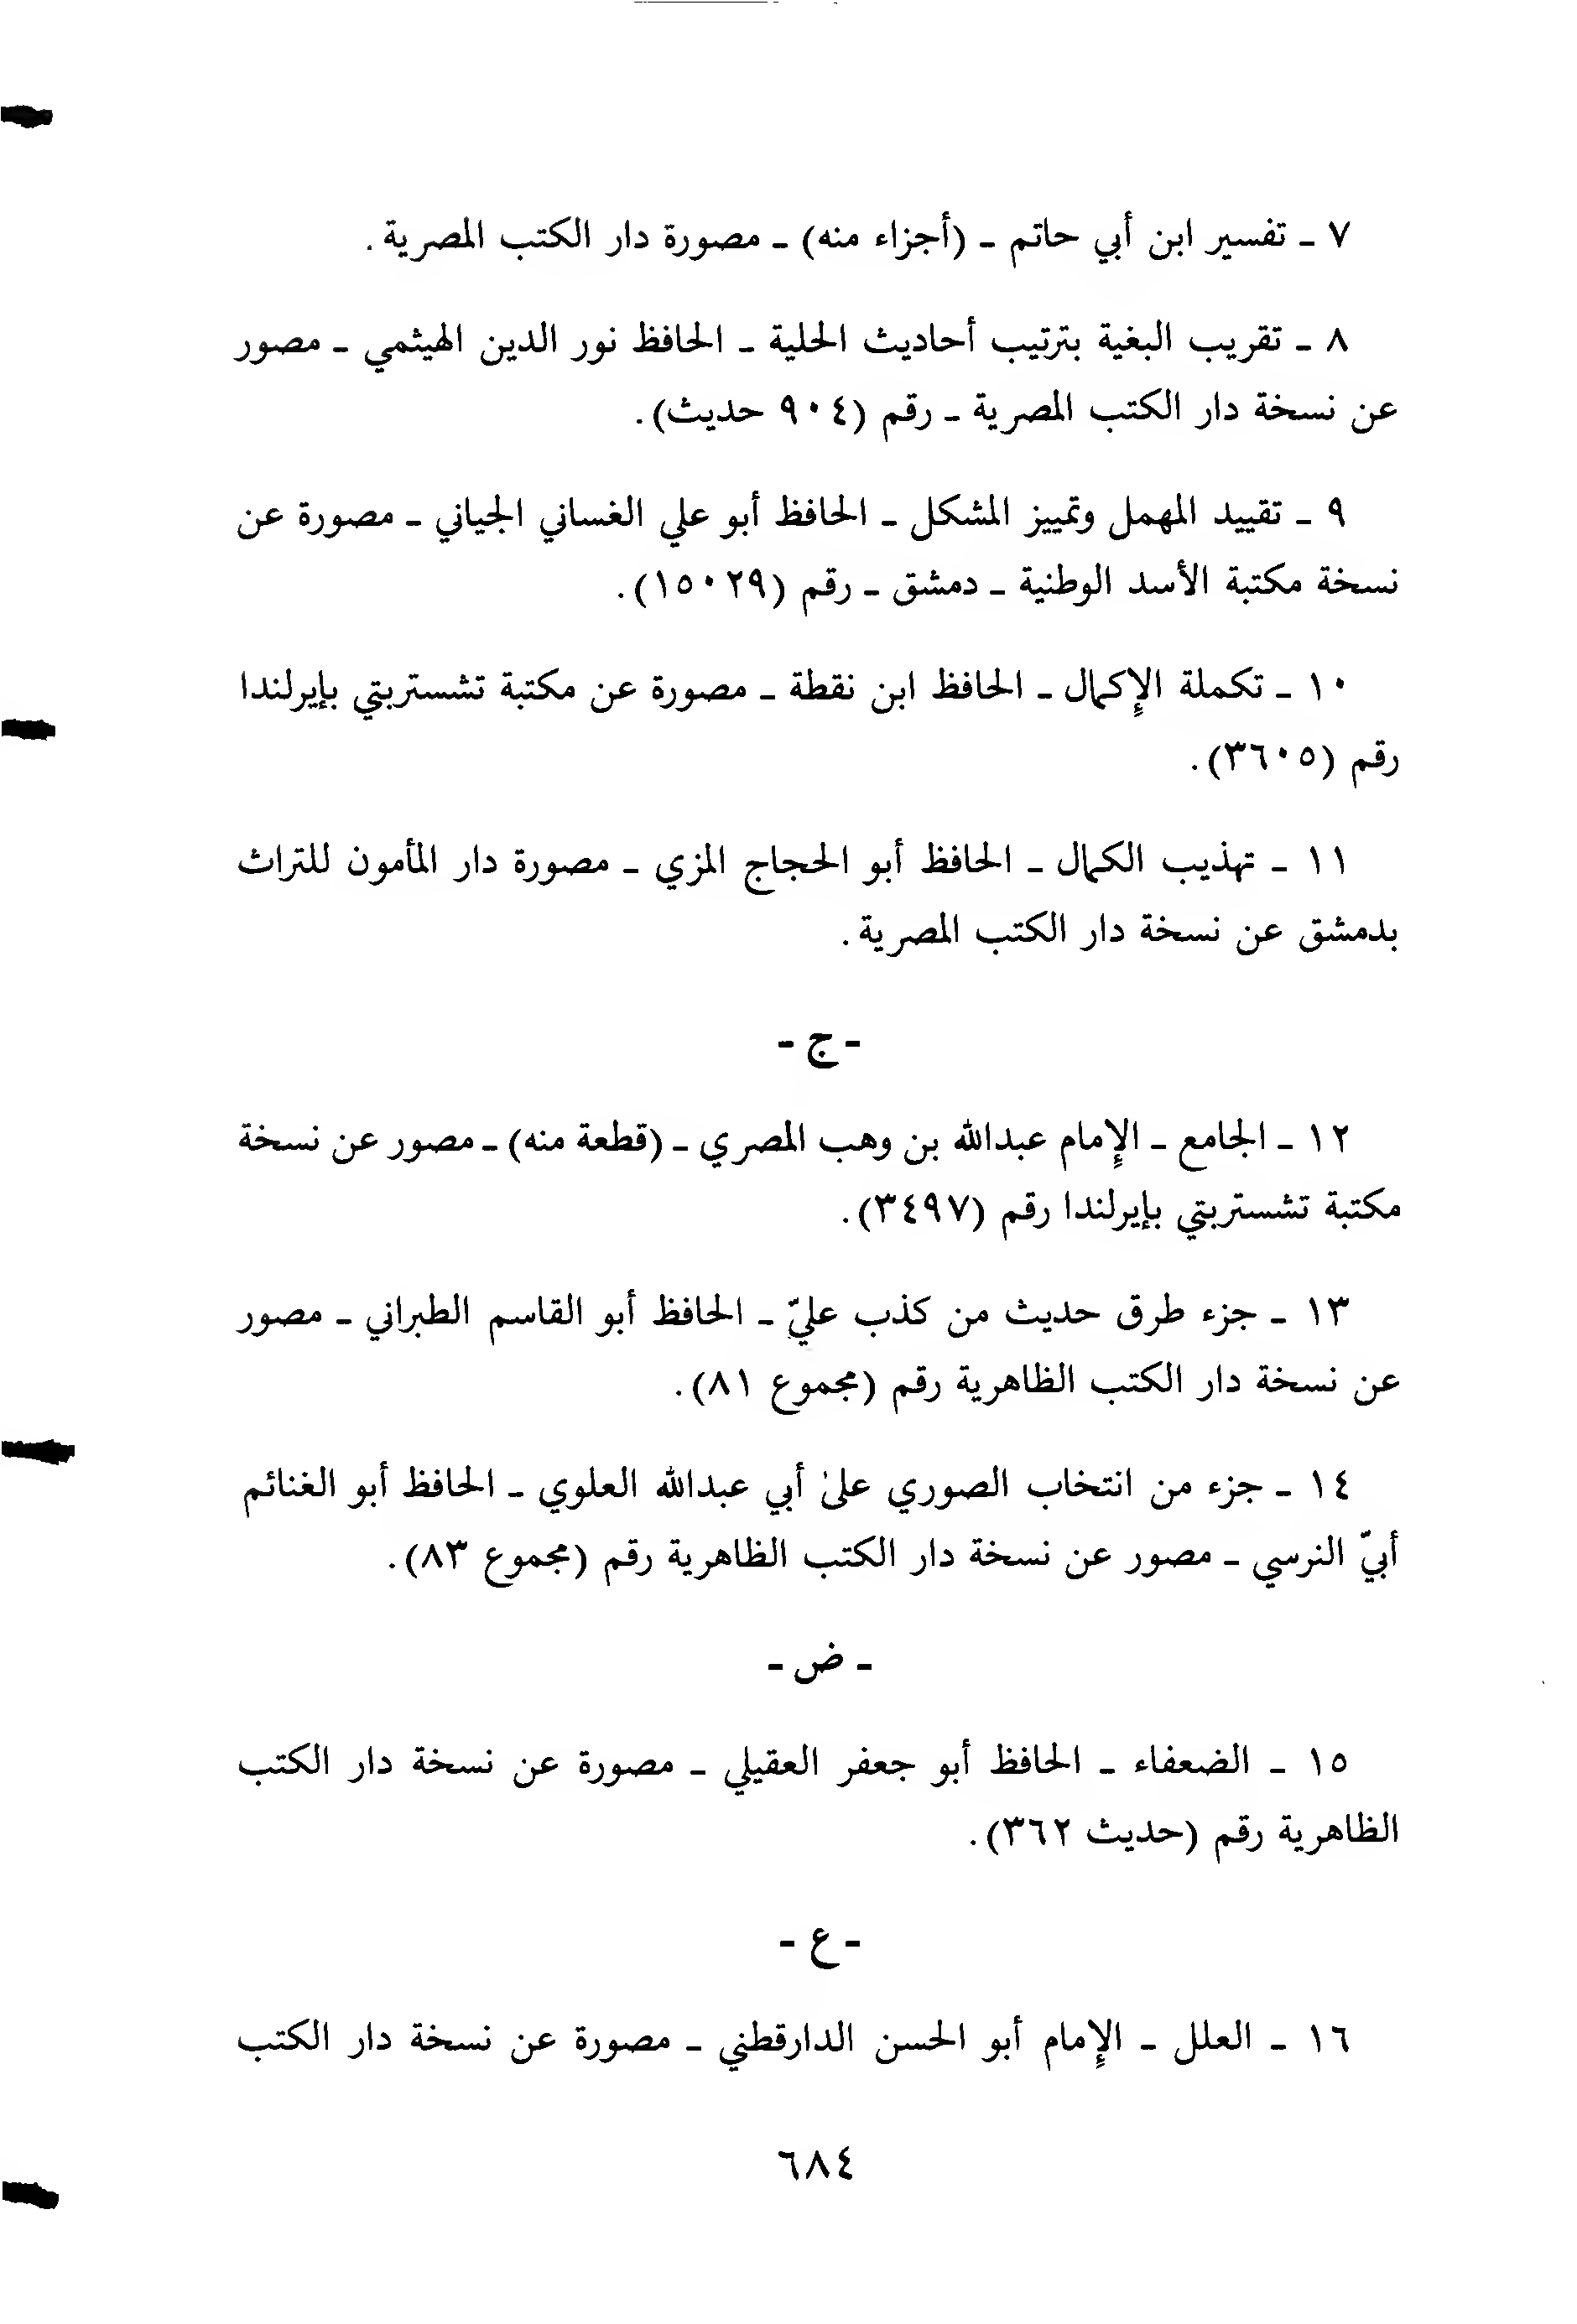 ٧ ـ تفسير ابن أبي حاتم ـ (أجزاء منه) ـ مصورة دار الكتب المصرية.
٨ ـ تقريب البغية بترتيب أحاديث الحلية ـ الحافظ نور الدين الهيثمي ـ مصور
عن نسخة دار الكتب المصرية ـ رقم (٩٠٤ حديث).
٩ ـ تقييد المهمل وتمييز المشكل ـ الحافظ أبو علي الغساني الجياني ـ مصورة عن
نسخة مكتبة الأسد الوطنية ـ دمشق ـ رقم (١٥٠٢٩).
١٠ ـ تكملة الإكمال ـ الحافظ ابن نقطة ـ مصورة عن مكتبة تشستربتي بإيرلندا
رقم (٣٦٠٥).
١١ ـ تهذيب الكمال ـ الحافظ أبو الحجاج المزي ـ مصورة دار المأمون للتراث
بدمشق عن نسخة دار الكتب المصرية.
ـ ج ـ
١٢ ـ الجامع ـ الإمام عبدالله بن وهب المصري ـ (قطعة منه) ـ مصور عن نسخة
مكتبة تشستربتي بإيرلندا رقم (٣٤٩٧).
١٣ ـ جزء طرق حديث من كذب عليّ ـ الحافظ أبو القاسم الطبراني ـ مصور
عن نسخة دار الكتب الظاهرية رقم (مجموع ٨١).
١٤ ـ جزء من انتخاب الصوري علىٰ أبي عبدالله العلوي ـ الحافظ أبو الغنائم
أبيّ النرسي ـ مصور عن نسخة دار الكتب الظاهرية رقم (مجموع ٨٣).
ـ ض ـ
١٥ ـ الضعفاء ـ الحافظ أبو جعفر العقيلي ـ مصورة عن نسخة دار الكتب
الظاهرية رقم (حديث ٣٦٢).
ـ ع ـ
١٦ ـ العلل ـ الإمام أبو الحسن الدارقطني ـ مصورة عن نسخة دار الكتب
٦٨٤